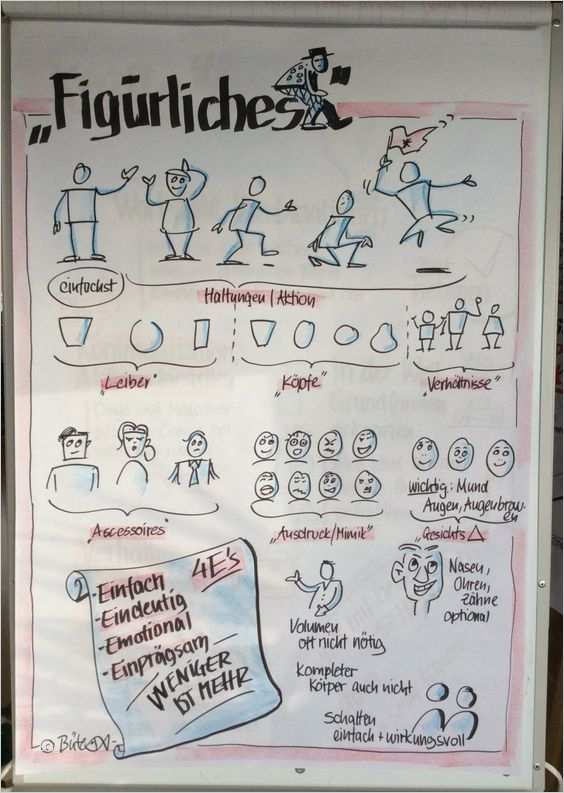 „Figürliches"
einfachst
Haltungen | Aktion
„Leiber"
„Köpfe"
„Verhältnisse"
„Accessoires"
„Ausdruck/Mimik"
„Gesichts △
wichtig: Mund
Augen, Augenbrau-
en
4E's
- Einfach
- Eindeutig
- Emotional
- Einprägsam
WENIGER
IST MEHR
Nasen,
Ohren,
Zähne
optional
Volumen
oft nicht nötig
kompletter
Körper auch nicht
Schatten
einfach + wirkungsvoll
©